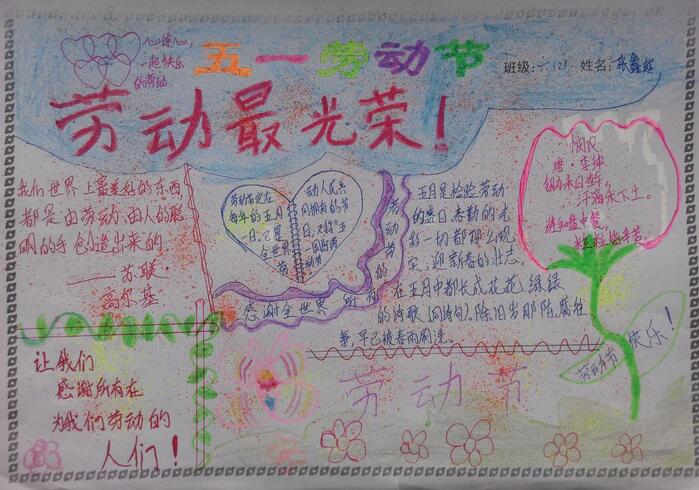 心连心,
一起快乐
的劳动
五一劳动节
班级:六(2)
姓名:张鑫
劳动最光荣!
我们世界上最美好的东西
都是由劳动、由人的聪
明的手创造出来的
——苏联·
高尔基
劳动节定在
每年的五月
一日。它是
全世界
劳动人民共
同拥有的节
日,又称"五
一国际劳
动节
感谢全世界所有的劳动节
五月是检验劳动
的盛日春勤的光
彩一切都那么现
实,迎新春的壮志
在五月中都长成花花、绿绿
的诗歌(同诗句)。陈旧当那陈腐往
事,早已被春雨刷洗。
悯农
唐 李绅
锄禾日当午,
汗滴禾下土。
谁知盘中餐,
粒粒皆辛苦。
劳动节
快乐!
让我们
感谢所有在
为我们劳动的
人们!
劳动节